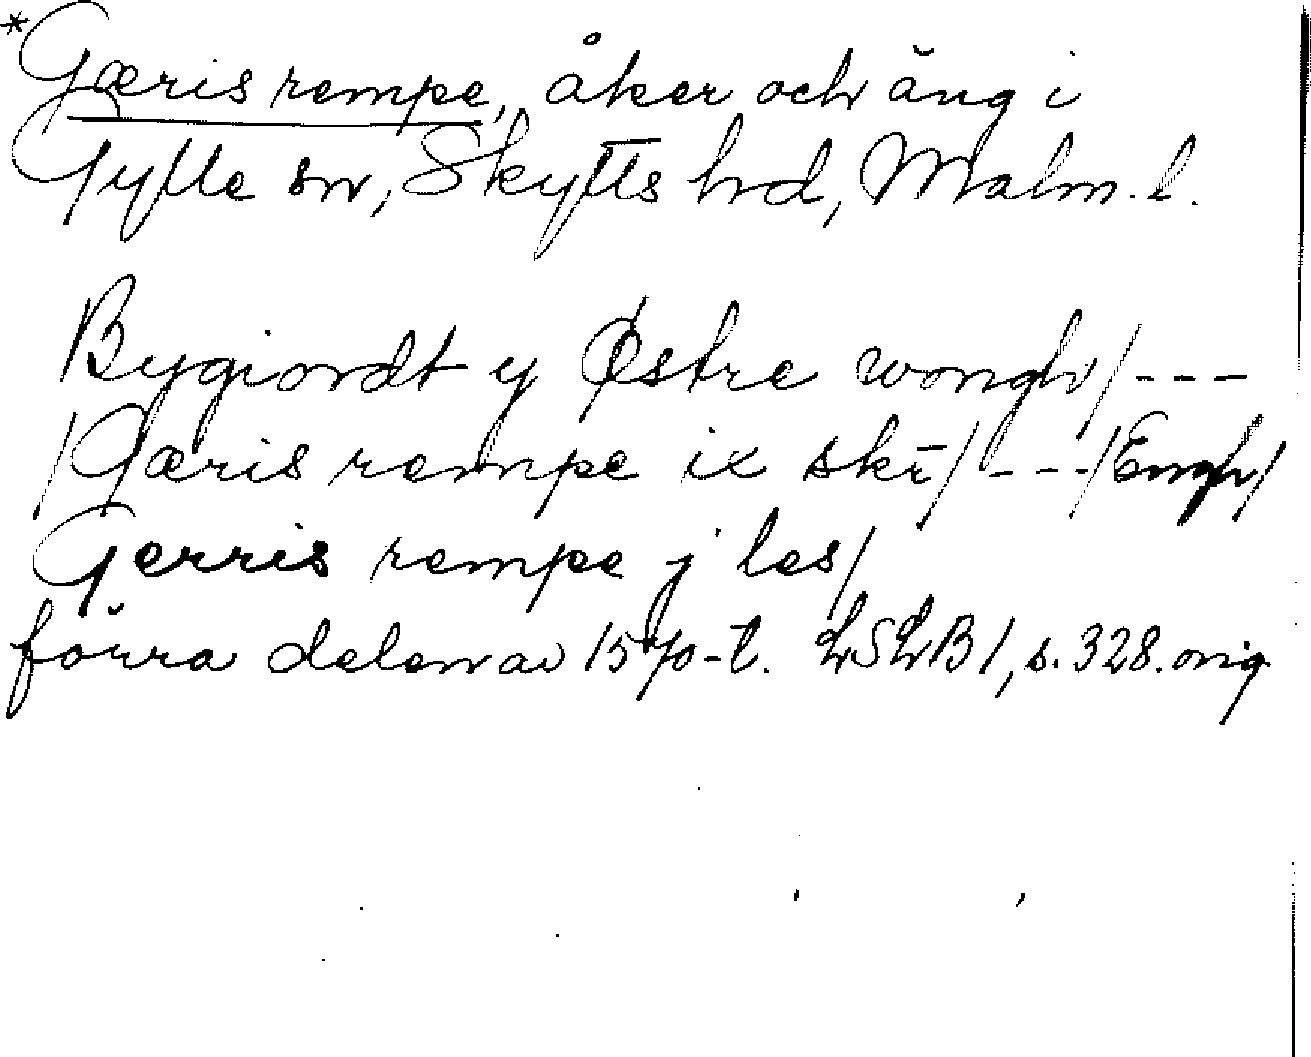 *Gæris rempe, åker och äng i
Gylle sn, Skytts hd, Malm. l.
Bygiordt y Østre wongh/---
/Gæris rempe ix skr̄/---/Engh/
Gerris rempe j les/
förra delen av 1570-t. LSLB 1, s. 328. orig.